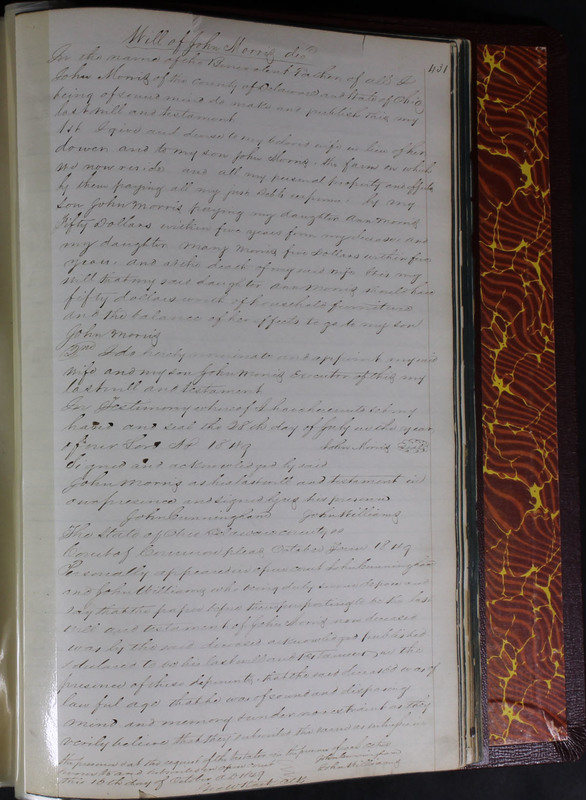 Will of John Morris decd
431
In the name of the Benevolent Father of all I
John Morris of the County of Delaware and State of Ohio
being of sound mind do make and publish this my
last will and testament
1st I give and devise to my beloved wife in lieu of her
dower and to my son John Morris the farm on which
we now reside and all my personal property and effects
by them paying all my just debts expenses by my
son John Morris paying my daughter Ann Morris
Fifty Dollars within five years from my decease and
my daughter Mary Morris five Dollars within five
years and at the death of my said wife it is my
will that my said daughter Ann Morris should have
fifty dollars worth of household furniture
and the balance of her effects to go to my son
John Morris
I do hereby nominate and appoint my said
wife and my son John Morris Executor of this my
last will and testament
In Testimony whereof I have hereunto set my
hand and seal the 28th day of July in the year
of our Lord AD 1849 John Morris
Signed and acknowledged by said
John Morris as his last will and testament in
our presence and signed by us in his presence
John Cunningham John Williams
The State of Ohio Delaware county ss
Court of Common pleas October Term 1849
Personally appeared in open court John Cunningham
and John Williams who being duly sworn depose and
say that the paper before them purporting to be the last
will and testament of John Morris now deceased
was by the said deceased acknowledged published
& declared to be his last will and testament in the
presence of these deponents that the said deceased was of
lawful age that he was of sound and disposing
mind and memory & under no restraint as they
verily believe that they subscribed the same as witnesses in
the presence & at the request of the testator in the presence of each other
Sworn to and subscribed in open court John Cunningham
this 16th day of October AD 1849 John Williams